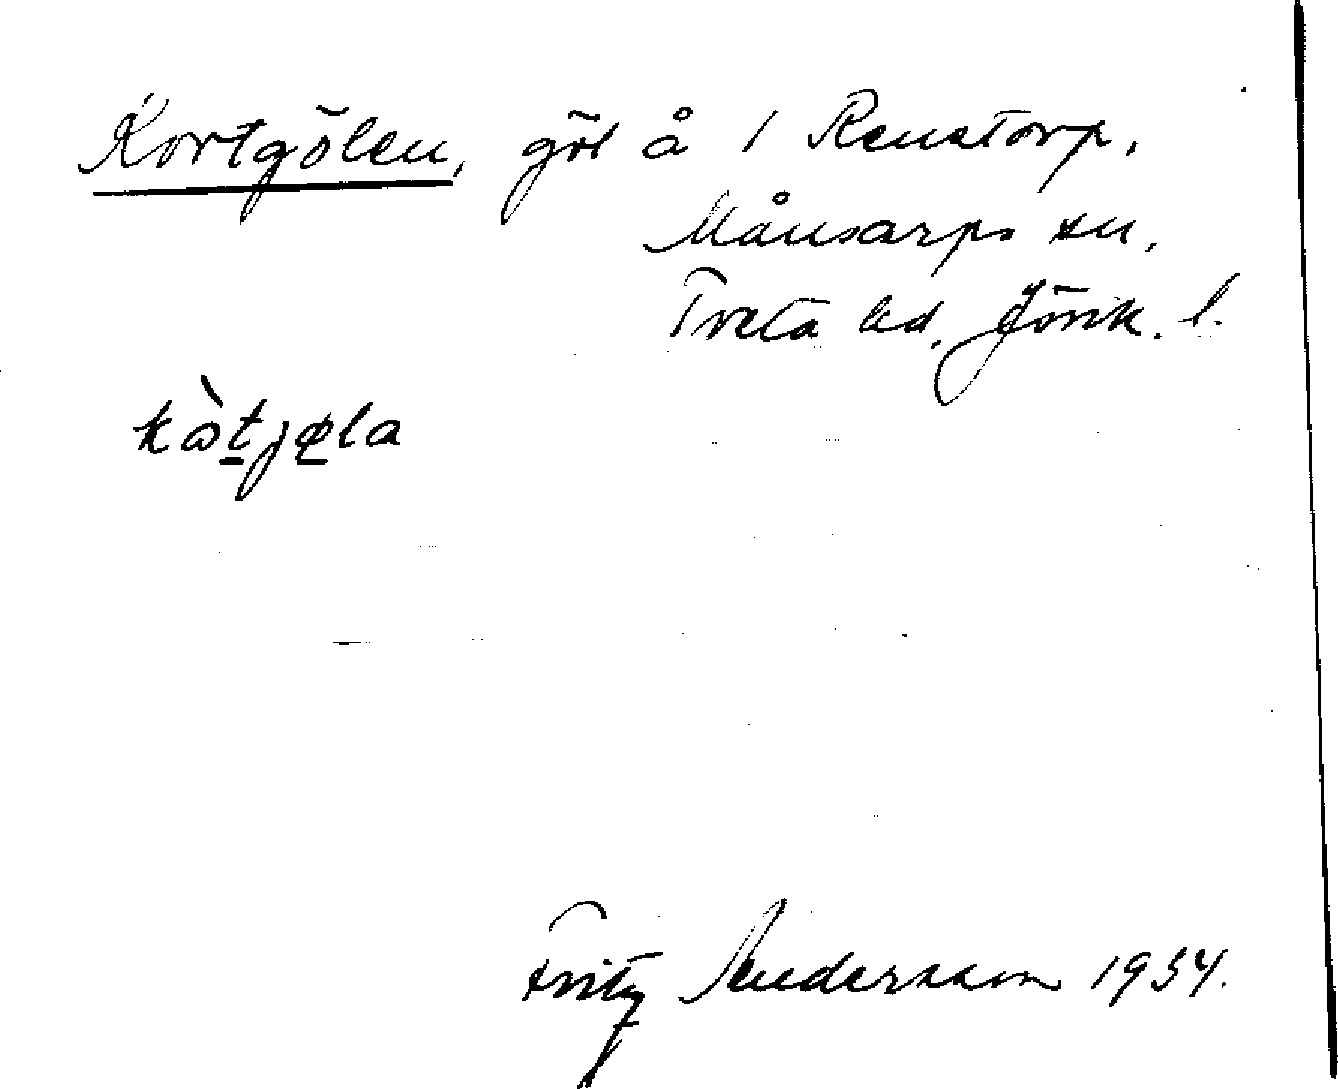 Kortgölen, göl å 1 Renstorp,
Månsarps sn,
Tveta hd, Jönk. l.
kòtjøla
Fritz Andersson 1934.